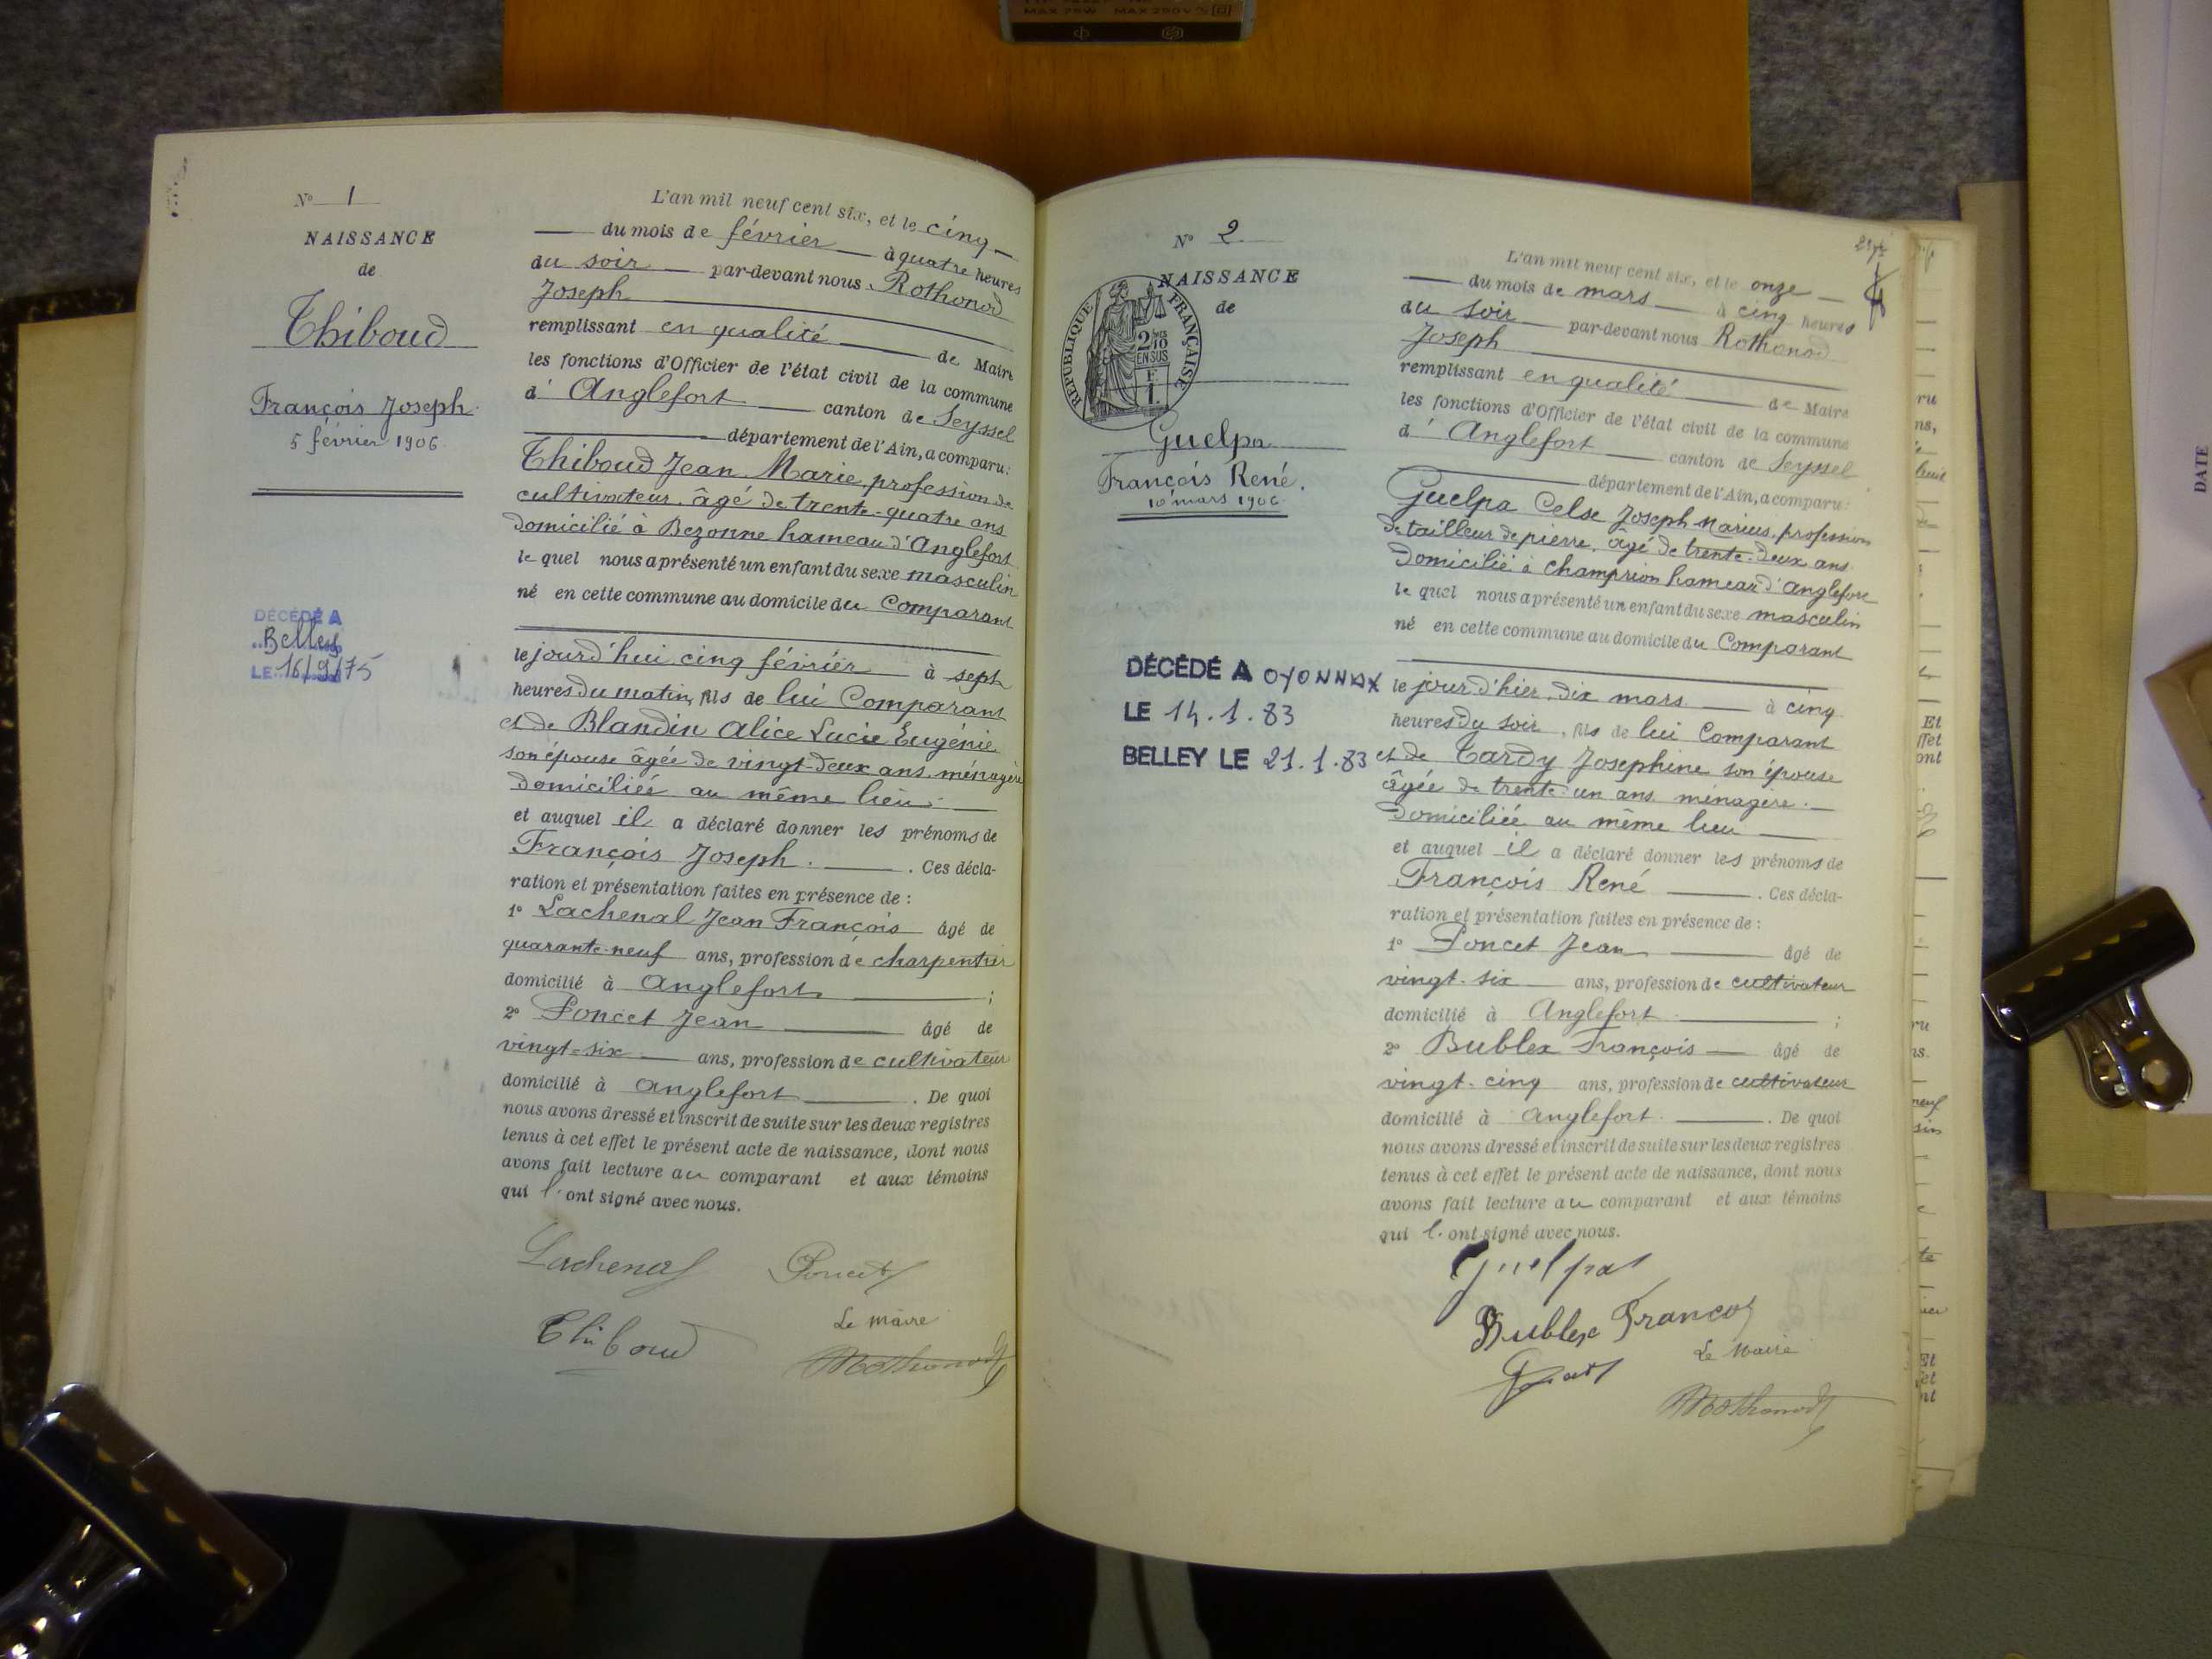 MAX 25W MAX 250V
N° 1
NAISSANCE
de
Thiboud
François Joseph.
5 février 1906.
DÉCÉDÉ A
Belley
LE 16/9/75
L'an mil neuf cent six, et le cinq
du mois de février à quatre heures
du soir par-devant nous Rothonod
Joseph
remplissant en qualité de Maire
les fonctions d'Officier de l'état civil de la commune
d' Anglefort canton de Seyssel
département de l'Ain, a comparu:
Thiboud Jean Marie, profession de
cultivateur, âgé de trente-quatre ans
domicilié à Bezonne hameau d'Anglefort
le quel nous a présenté un enfant du sexe masculin
né en cette commune au domicile du Comparant
le jourd'hui cinq février à sept
heures du matin, fils de lui Comparant
et de Blandin Alice Lucie Eugénie
son épouse âgée de vingt-deux ans, ménagère
domiciliée au même lieu.
et auquel il a déclaré donner les prénoms de
François Joseph. . Ces décla-
ration et présentation faites en présence de :
1° Lachenal Jean François âgé de
quarante-neuf ans, profession de charpentier
domicilié à Anglefort ;
2° Poncet Jean âgé de
vingt-six ans, profession de cultivateur
domicilié à Anglefort . De quoi
nous avons dressé et inscrit de suite sur les deux registres
tenus à cet effet le présent acte de naissance, dont nous
avons fait lecture au comparant et aux témoins
qui l'ont signé avec nous.
Lachenal Poncet
Le Maire
Thiboud Rothonod
N° 2
NAISSANCE
de
RÉPUBLIQUE FRANÇAISE
2 10
EN SUS
F.
1.
Guelpa
François René.
10 mars 1906
DÉCÉDÉ A OYONNAX
LE 14.1.83
BELLEY LE 21.1.83
L'an mil neuf cent six, et le onze
du mois de mars à cinq heures
du soir par-devant nous Rothonod
Joseph
remplissant en qualité de Maire
les fonctions d'Officier de l'état civil de la commune
d' Anglefort canton de Seyssel
département de l'Ain, a comparu:
Guelpa Celse Joseph Marius, profession
de tailleur de pierre, âgé de trente-deux ans
domicilié à Champrion hameau d'Anglefort
le quel nous a présenté un enfant du sexe masculin
né en cette commune au domicile du Comparant
le jour d'hier, dix mars à cinq
heures du soir, fils de lui Comparant
et de Tardy Josephine son épouse
âgée de trente-un ans, ménagère.
domiciliée au même lieu
et auquel il a déclaré donner les prénoms de
François René . Ces décla-
ration et présentation faites en présence de :
1° Poncet Jean âgé de
vingt-six ans, profession de cultivateur
domicilié à Anglefort ;
2° Bublex François âgé de
vingt-cinq ans, profession de cultivateur
domicilié à Anglefort . De quoi
nous avons dressé et inscrit de suite sur les deux registres
tenus à cet effet le présent acte de naissance, dont nous
avons fait lecture au comparant et aux témoins
qui l'ont signé avec nous.
Guelpa
Bublex Francois
Le Maire
Rothonod
DATE